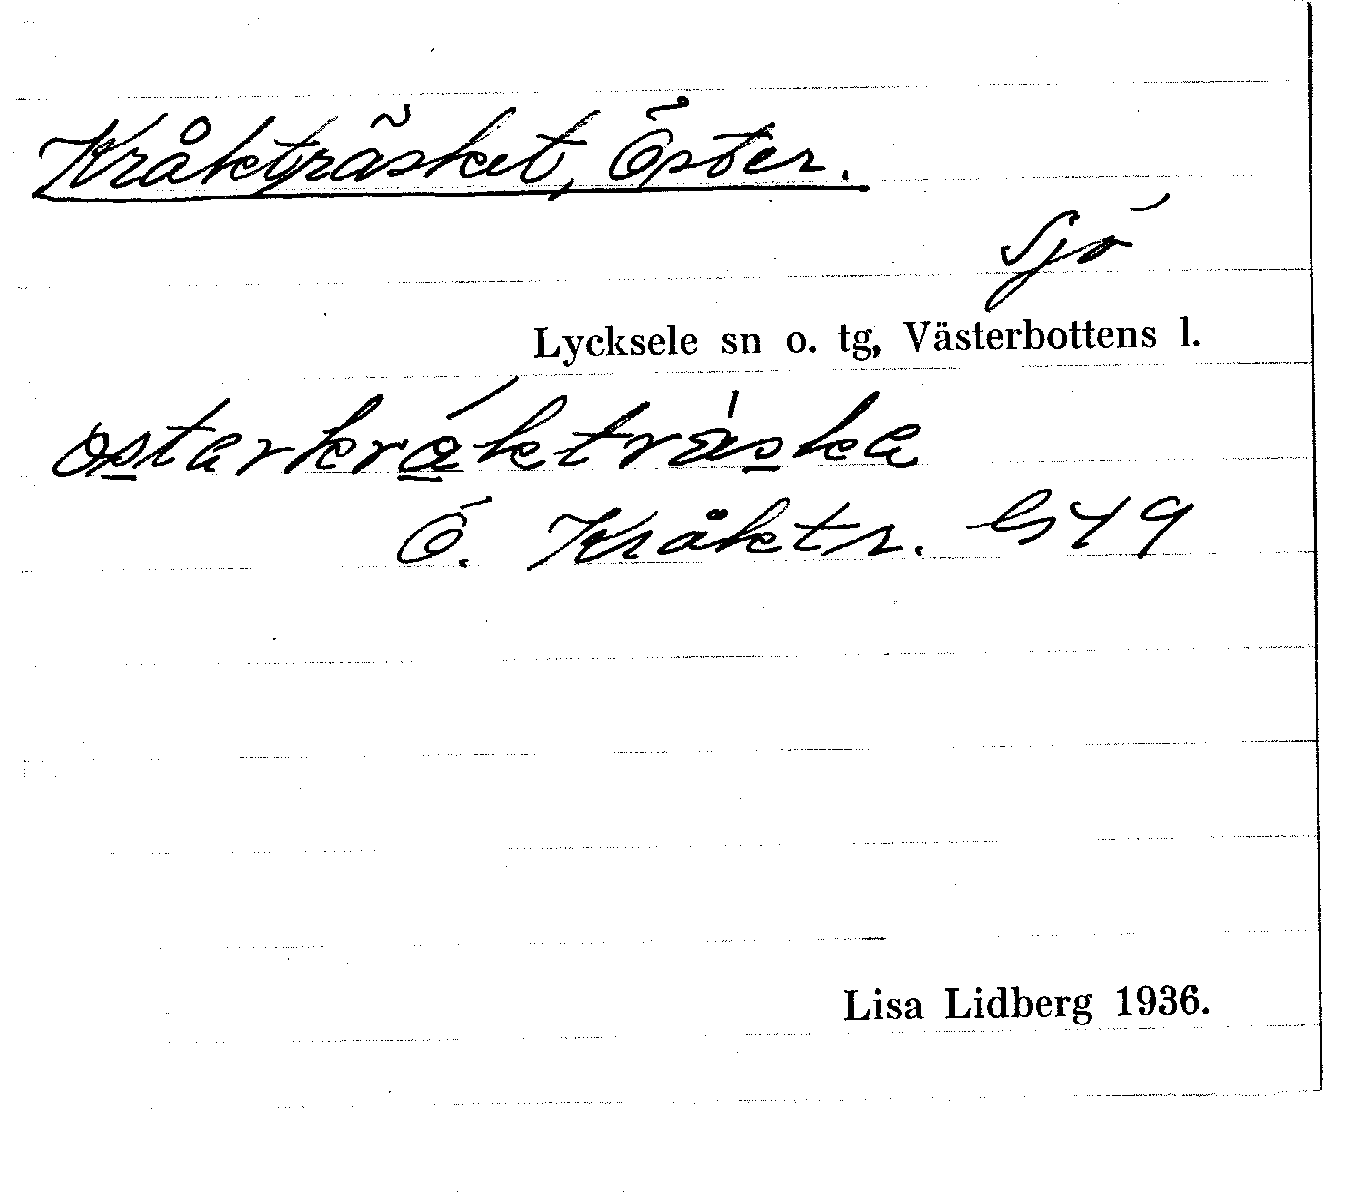 Kråkträsket, Öster.
Sjö
Lycksele sn o. tg, Västerbottens l.
ostarkråkträska
Ö. Kråktr. G49
Lisa Lidberg 1936.